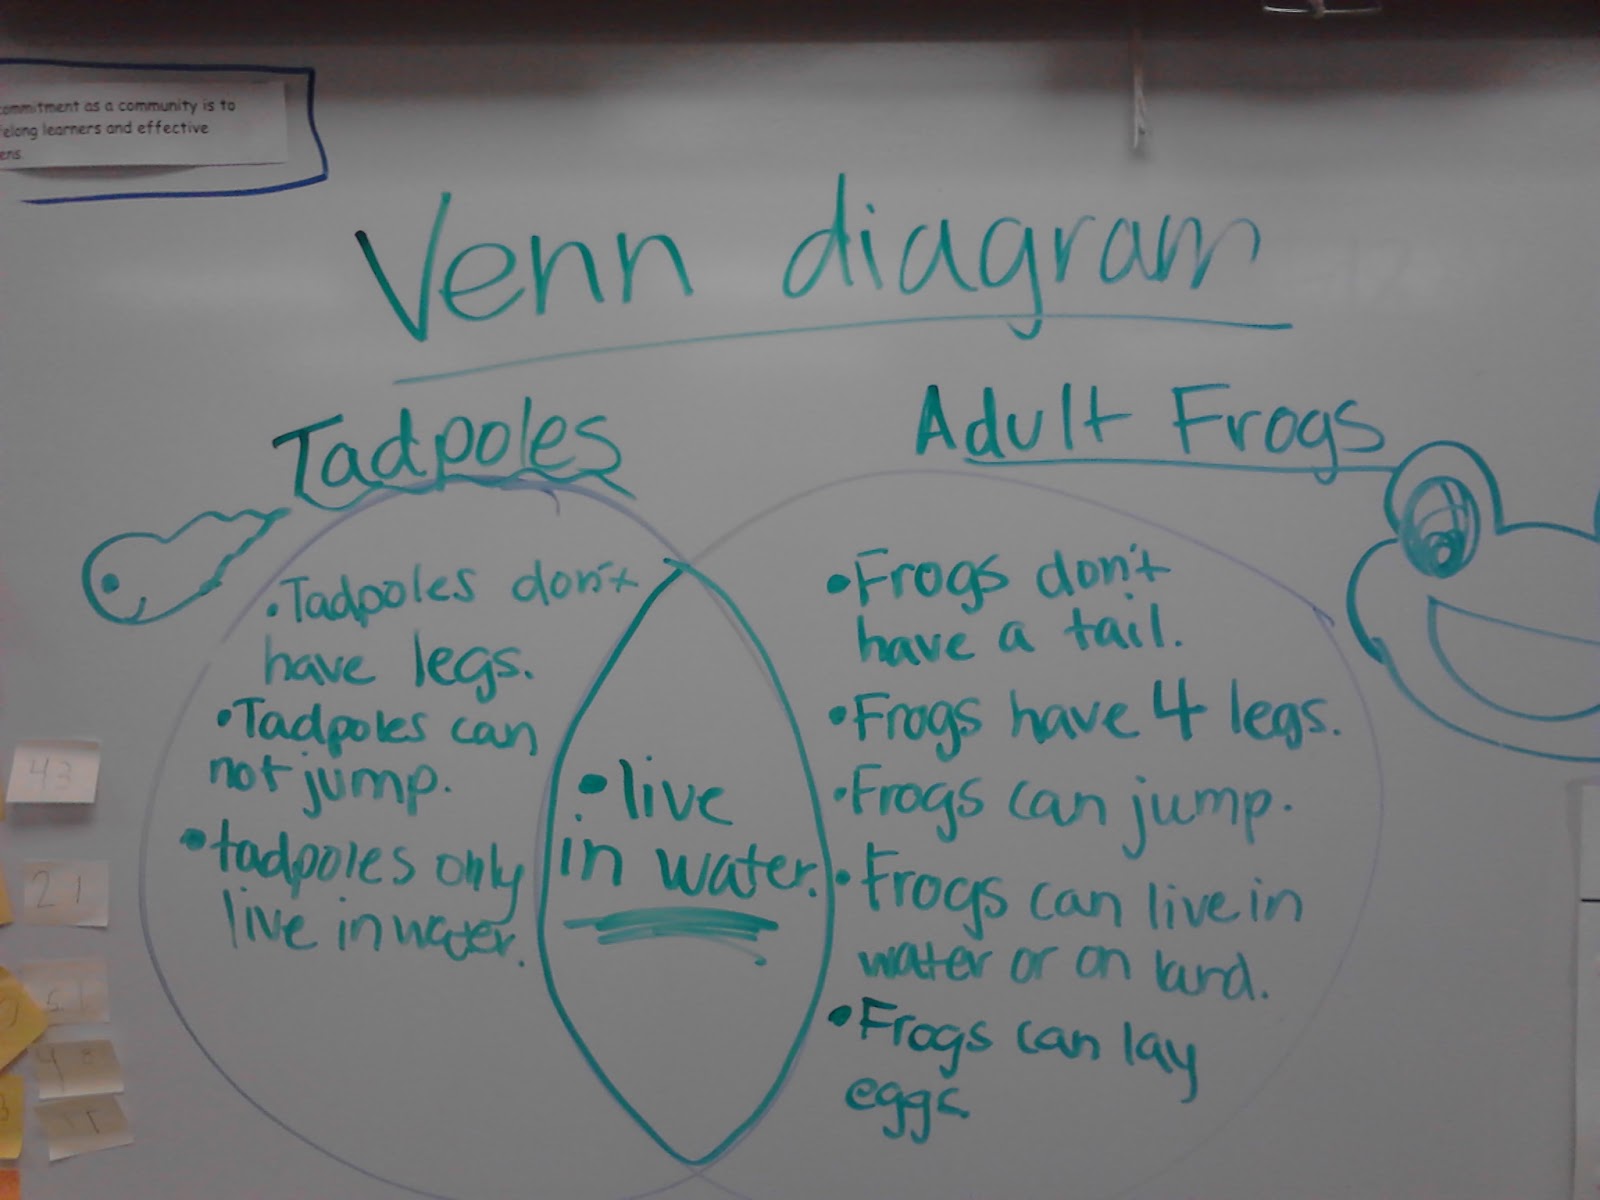 commitment as a community is to
felong learners and effective
ens.
Venn diagram
Tadpoles
Adult Frogs
•Tadpoles don't
have legs.
•Tadpoles can
not jump.
•tadpoles only
live in water.
•live
in water.
•Frogs don't
have a tail.
•Frogs have 4 legs.
•Frogs can jump.
•Frogs can live in
water or on land.
•Frogs can lay
eggs.
43
21